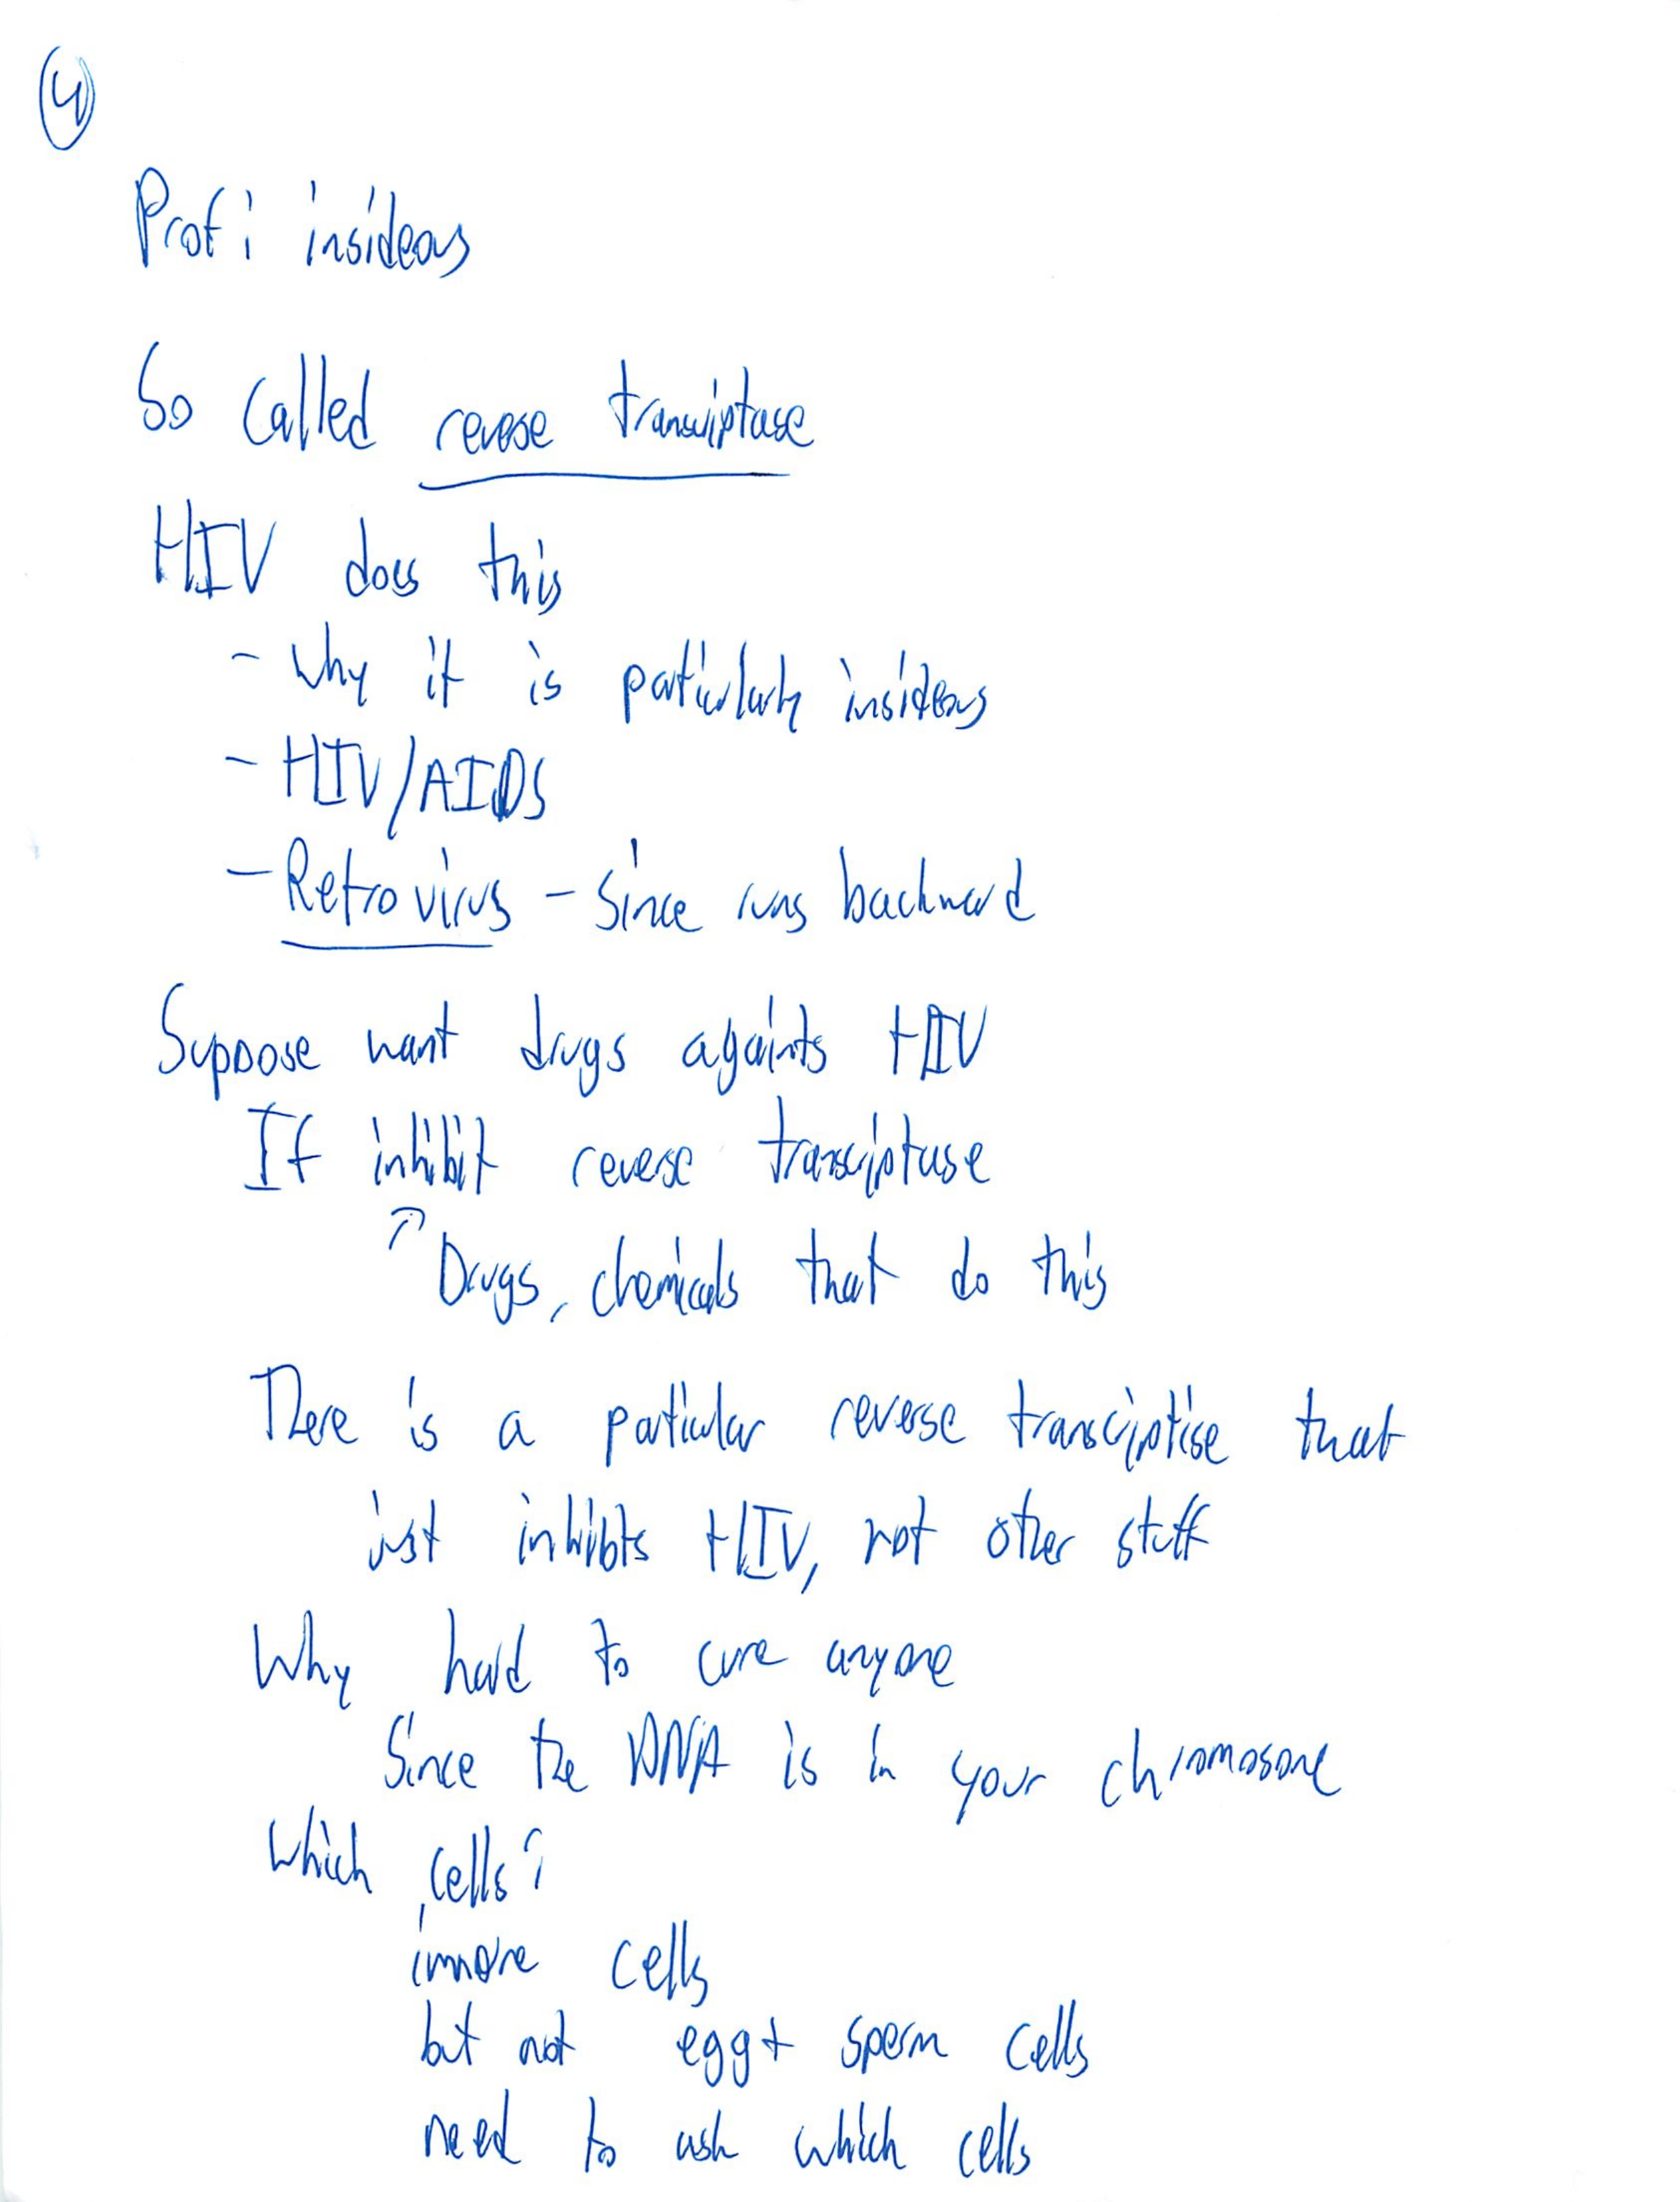 4
Prof: insideous
So called reverse transciptase
HIV does this
- Why it is particularly insideous
- HIV/AIDS
- Retro virus - Since runs backward
Suppose want drugs againts HIV
If inhibit reverse transciptase
↗ Drugs, chemicals that do this
There is a particular reverse transciptise that
just inhibits HIV, not other stuff
Why hard to cure anyone
Since the DNA is in your chromosone
Which cells?
immune cells
but not egg + sperm cells
need to ask which cells